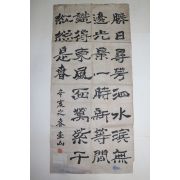 勝日尋芳泗水濱無
邊光景一時新等閒
識得東風面萬紫千
紅總是春
之春 山